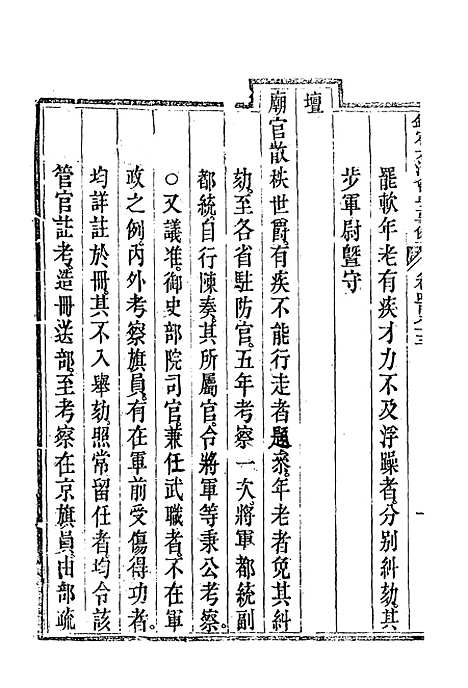 罷軟年老有疾才力不及浮躁者分別糾劾其
步軍尉暨守
壇
廟官散秩世爵有疾不能行走者題叅年老者免其糾
劾至各省駐防官五年考察一次將軍都統副
都統自行陳奏其所屬官令將軍等秉公考察
○又議准御史部院司官兼任武職者不在軍
政之例內外考察旗員有在軍前受傷得功者
均詳註於冊其不入舉劾照常留任者均令該
管官註考造冊送部至考察在京旗員由部疏